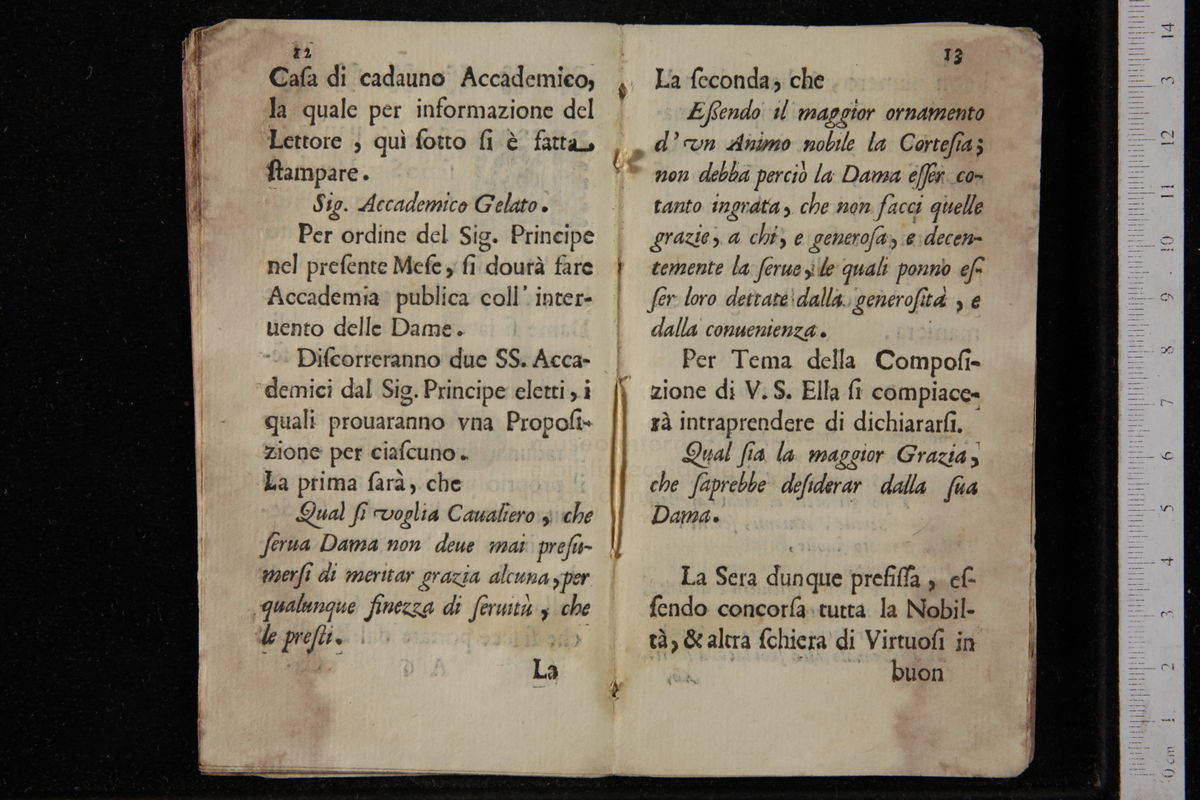 12
Caſa di cadauno Accademico,
la quale per informazione del
Lettore , quì ſotto ſi è fatta
ſtampare.
Sig. Accademico Gelato.
Per ordine del Sig. Principe
nel preſente Meſe, ſi dourà fare
Accademia publica coll' inter-
uento delle Dame.
Diſcorreranno due SS. Acca-
demici dal Sig. Principe eletti, i
quali prouaranno vna Propoſi-
zione per ciaſcuno.
La prima ſarà, che
Qual ſi voglia Caualiero , che
ſerua Dama non deue mai preſu-
merſi di meritar grazia alcuna, per
qualunque finezza di ſeruitù , che
le preſti.
La
13
La ſeconda, che
Eſſendo il maggior ornamento
d' vn Animo nobile la Corteſia;
non debba perciò la Dama eſſer co-
tanto ingrata, che non facci quelle
grazie, a chi, e generoſa, e decen-
temente la ſerue, le quali ponno eſ-
ſer loro dettate dalla generoſità , e
dalla conuenienza.
Per Tema della Compoſi-
zione di V. S. Ella ſi compiace-
rà intraprendere di dichiararſi.
Qual ſia la maggior Grazia,
che ſaprebbe deſiderar dalla ſua
Dama.
La Sera dunque prefiſſa , eſ-
ſendo concorſa tutta la Nobil-
tà, & altra ſchiera di Virtuoſi in
buon
0 cm 1 2 3 4 5 6 7 8 9 10 11 12 3 14